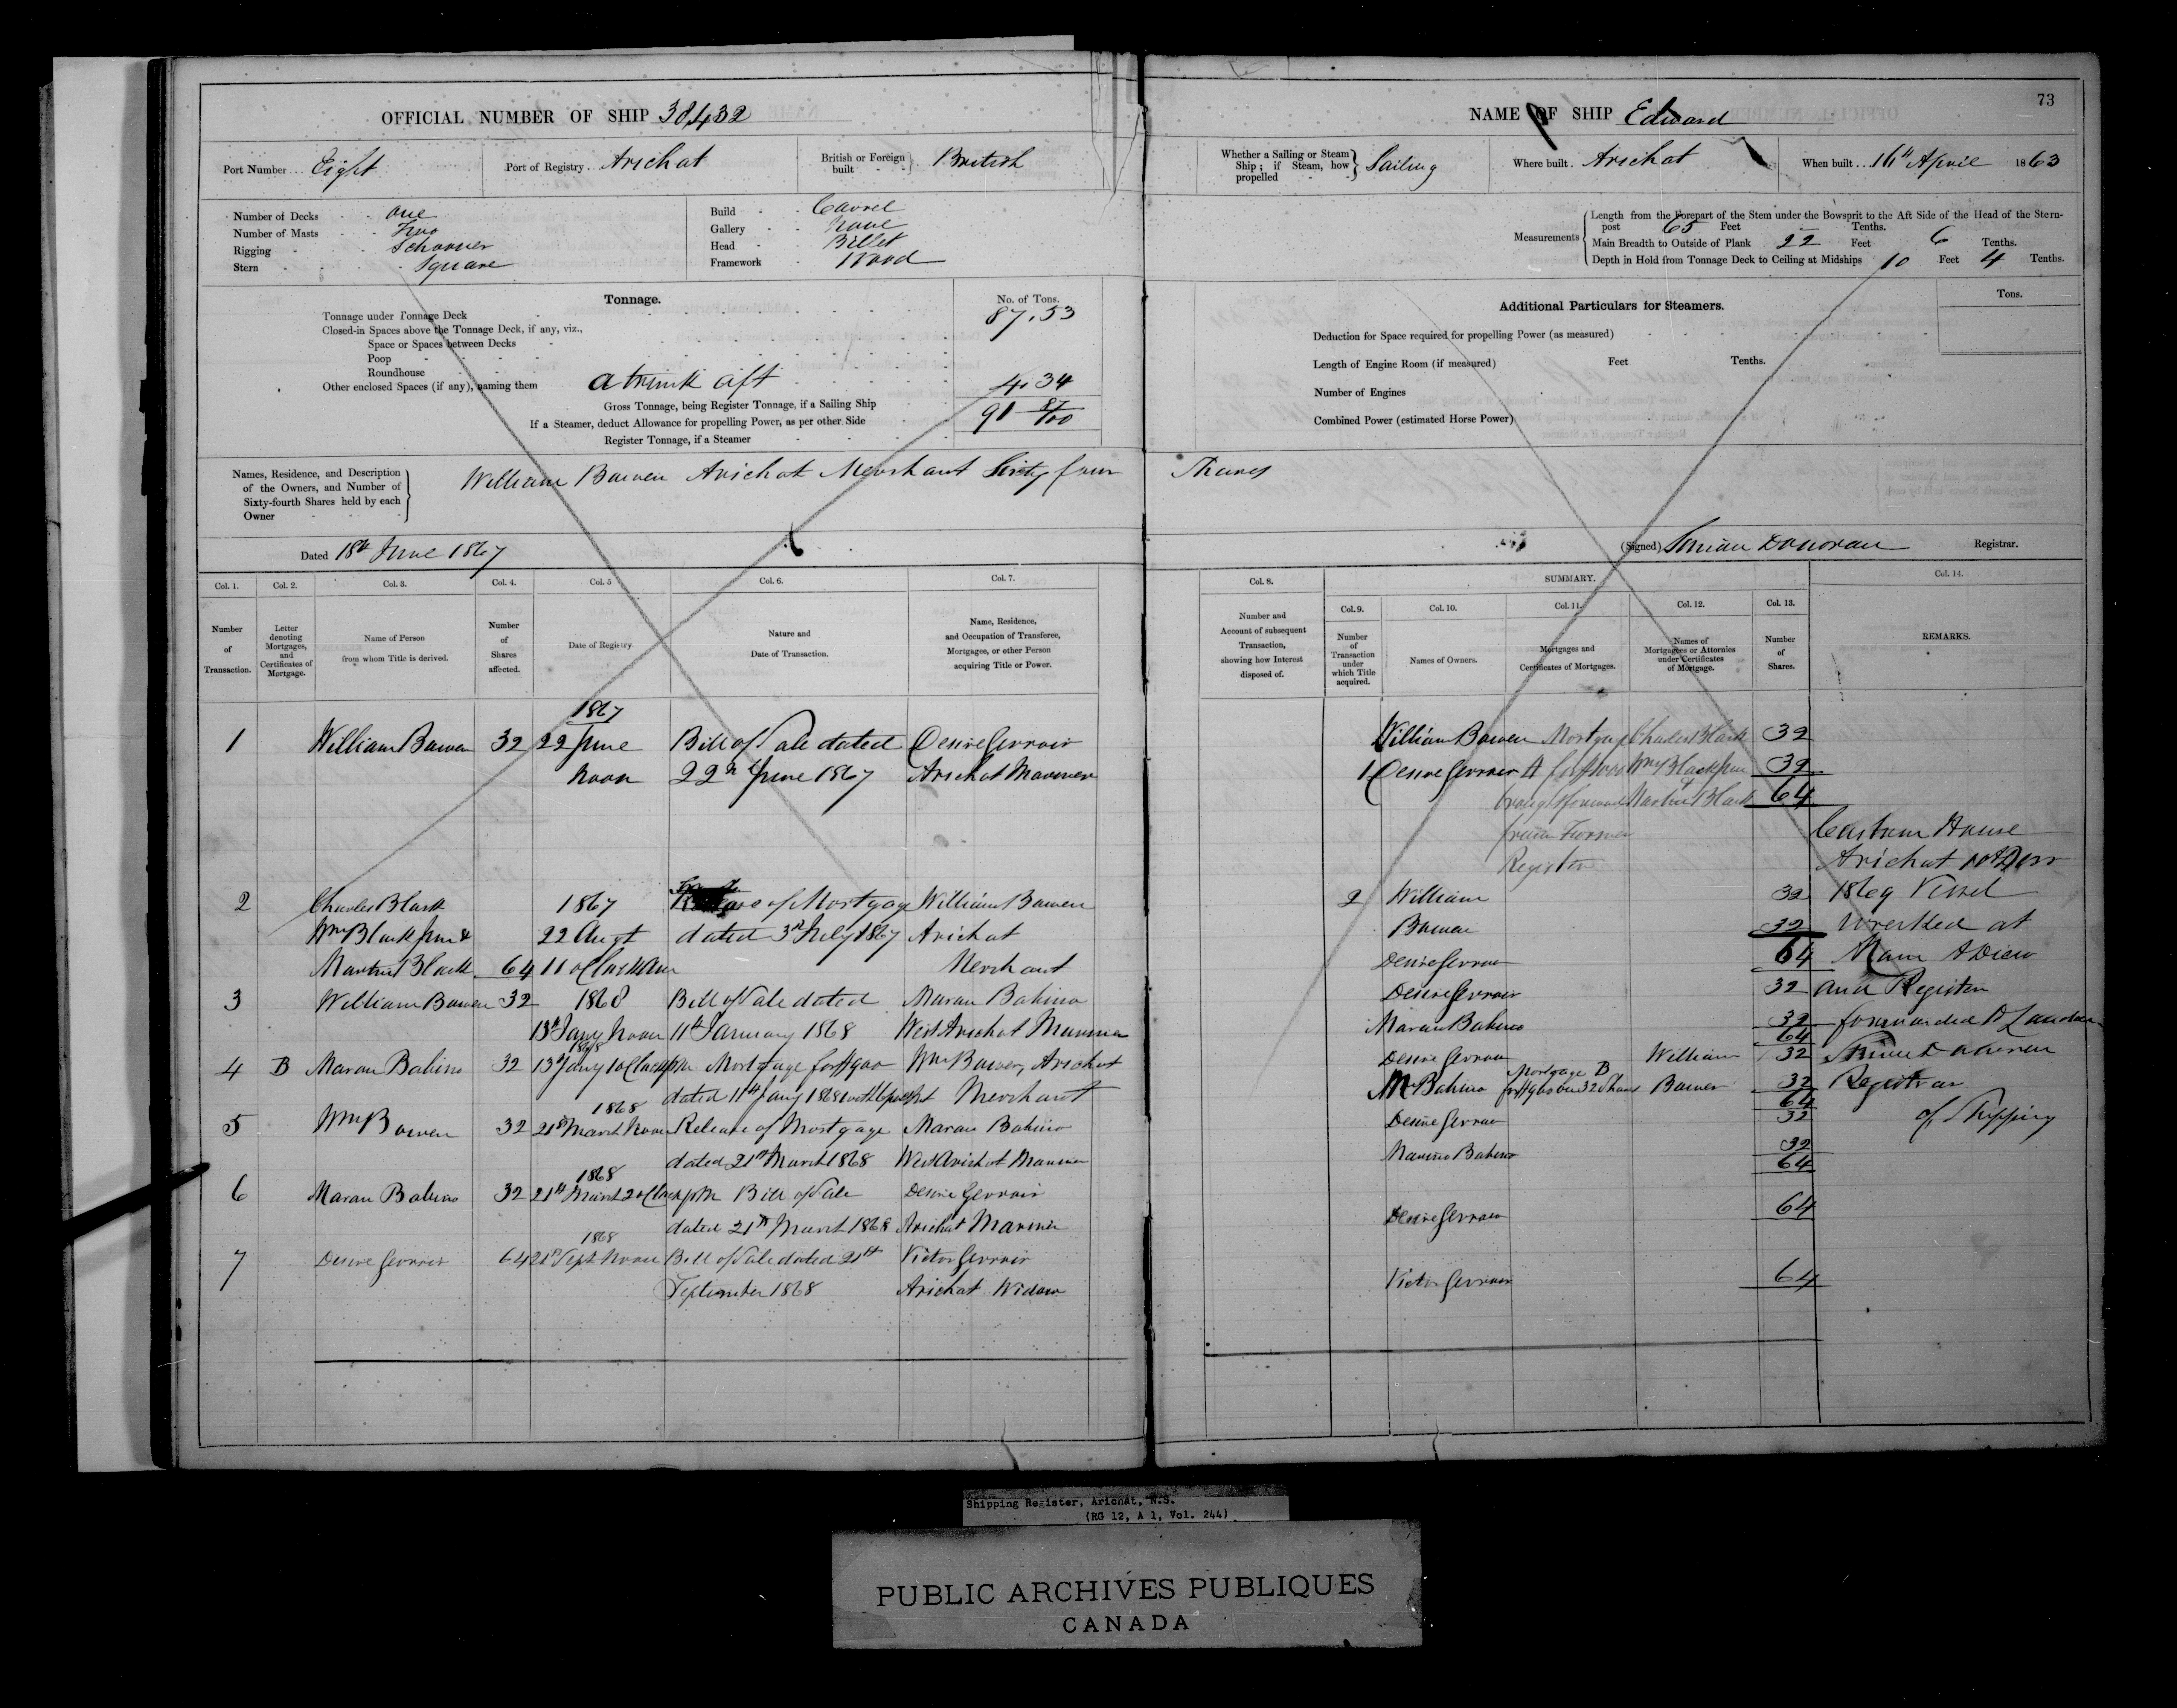 OFFICIAL NUMBER OF SHIP 38432
Port Number Eight Port of Registry Arichat British or Foreign built British
Number of Decks one
Number of Masts Two
Rigging Schooner
Stern Square
Build Carvel
Gallery None
Head Billet
Framework Wood
Tonnage. No. of Tons.
Tonnage under Tonnage Deck 87.53
Closed-in Spaces above the Tonnage Deck, if any, viz.,
Space or Spaces between Decks
Poop
Roundhouse
Other enclosed Spaces (if any), naming them a trunk aft 4.34
Gross Tonnage, being Register Tonnage, if a Sailing Ship 91 87/100
If a Steamer, deduct Allowance for propelling Power, as per other Side
Register Tonnage, if a Steamer
Names, Residence, and Description
of the Owners, and Number of
Sixty-fourth Shares held by each
Owner
William Bowen Arichat Merchant Sixty four
Dated 18th June 1867
Col. 1. Col. 2. Col. 3. Col. 4. Col. 5 Col. 6. Col. 7.
Number of Transaction.
Letter denoting Mortgages, and Certificates of Mortgage.
Name of Person from whom Title is derived.
Number of Shares affected.
Date of Registry.
Nature and Date of Transaction.
Name, Residence, and Occupation of Transferee, Mortgagee, or other Person acquiring Title or Power.
1867
1 William Bowen 32 22 June Bill of Sale dated Desire Gerroir
Noon 22nd June 1867 Arichat Mariner
2 Charles Black 1867 of Mortgage William Bowen
Wm Black Junr & 22 Augt dated 3rd July 1867 Arichat
Martin Black 64 11 oClock Am Merchant
3 William Bowen 32 1868 Bill of Sale dated Maran Babino
13th Jany Noon 11th January 1868 West Arichat Mariner
1868
4 B Maran Babino 32 13th Jany 1 oClock pm Mortgage for $900 Wm Bowen, Arichat
dated 11th Jany 1868 Merchant
1868
5 Wm Bowen 32 21st March Noon Release of Mortgage Maran Babino
dated 21st March 1868 West Arichat Mariner
1868
6 Maran Babino 32 21st March 2 oClock pm Bill of Sale Desire Gerroir
dated 21st March 1868 Arichat Mariner
1868
7 Desire Gerroir 64 21st Sept Noon Bill of Sale dated 21st Victor Gerroir
September 1868 Arichat Widow
73
NAME OF SHIP Edward
Whether a Sailing or Steam Ship; if Steam, how propelled Sailing Where built Arichat When built 16th April 1863
Measurements
Length from the Forepart of the Stem under the Bowsprit to the Aft Side of the Head of the Stern-
post 65 Feet - Tenths.
Main Breadth to Outside of Plank 22 Feet 6 Tenths.
Depth in Hold from Tonnage Deck to Ceiling at Midships 10 Feet 4 Tenths.
Additional Particulars for Steamers. Tons.
Deduction for Space required for propelling Power (as measured)
Length of Engine Room (if measured) Feet Tenths.
Number of Engines
Combined Power (estimated Horse Power)
Shares
(Signed) Donovan Registrar.
Col. 8. SUMMARY. Col. 14.
Col. 9. Col. 10. Col. 11. Col. 12. Col. 13.
Number and Account of subsequent Transaction, showing how Interest disposed of.
Number of Transaction under which Title acquired.
Names of Owners.
Mortgages and Certificates of Mortgages.
Names of Mortgagees or Attornies under Certificates of Mortgage.
Number of Shares.
REMARKS.
William Bowen Mortgage Charles Black 32
1 Desire Gerroir A for Wm Black Junr 32
brought forward Martin Black 64
from Former Custom House
Register Arichat
2 William 32 1869 Vessel
Bowen 32 Wrecked at
64 Main A Dieu
Desire Gerroir
Desire Gerroir 32 and Register
Maran Babino 32 forwarded to London
64
Desire Gerroir William 32 Donovan
M Babino Mortgage B for $900 on 32 Shares Bowen 32 Registrar
64
Desire Gerroir 32 of Shipping
Maran Babino 32
64
Desire Gerroir 64
Victor Gerroir 64
Shipping Register, Arichat, N.S.
(RG 12, A 1, Vol. 244)
PUBLIC ARCHIVES PUBLIQUES
CANADA